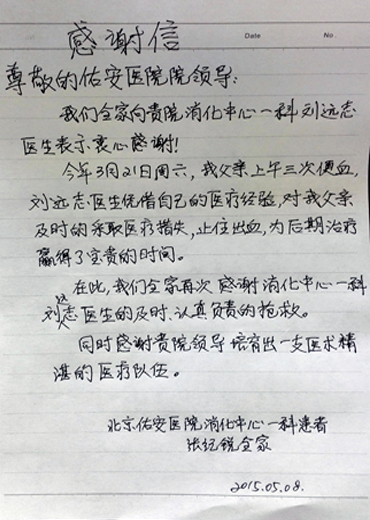 感谢信
Date
No.
尊敬的佑安医院院领导:
我们全家向贵院消化中心一科刘远志
医生表示衷心感谢!
今年3月21日周六,我父亲上午三次便血,
刘远志医生凭借自己的医疗经验,对我父亲
及时的采取医疗措失,止住出血,为后期治疗
赢得了宝贵的时间。
在此,我们全家再次感谢消化中心一科
刘远志医生的及时、认真负责的抢救。
同时感谢贵院领导培育出一支医术精
湛的医疗队伍。
北京佑安医院消化中心一科患者
张纪锐全家
2015.05.08.